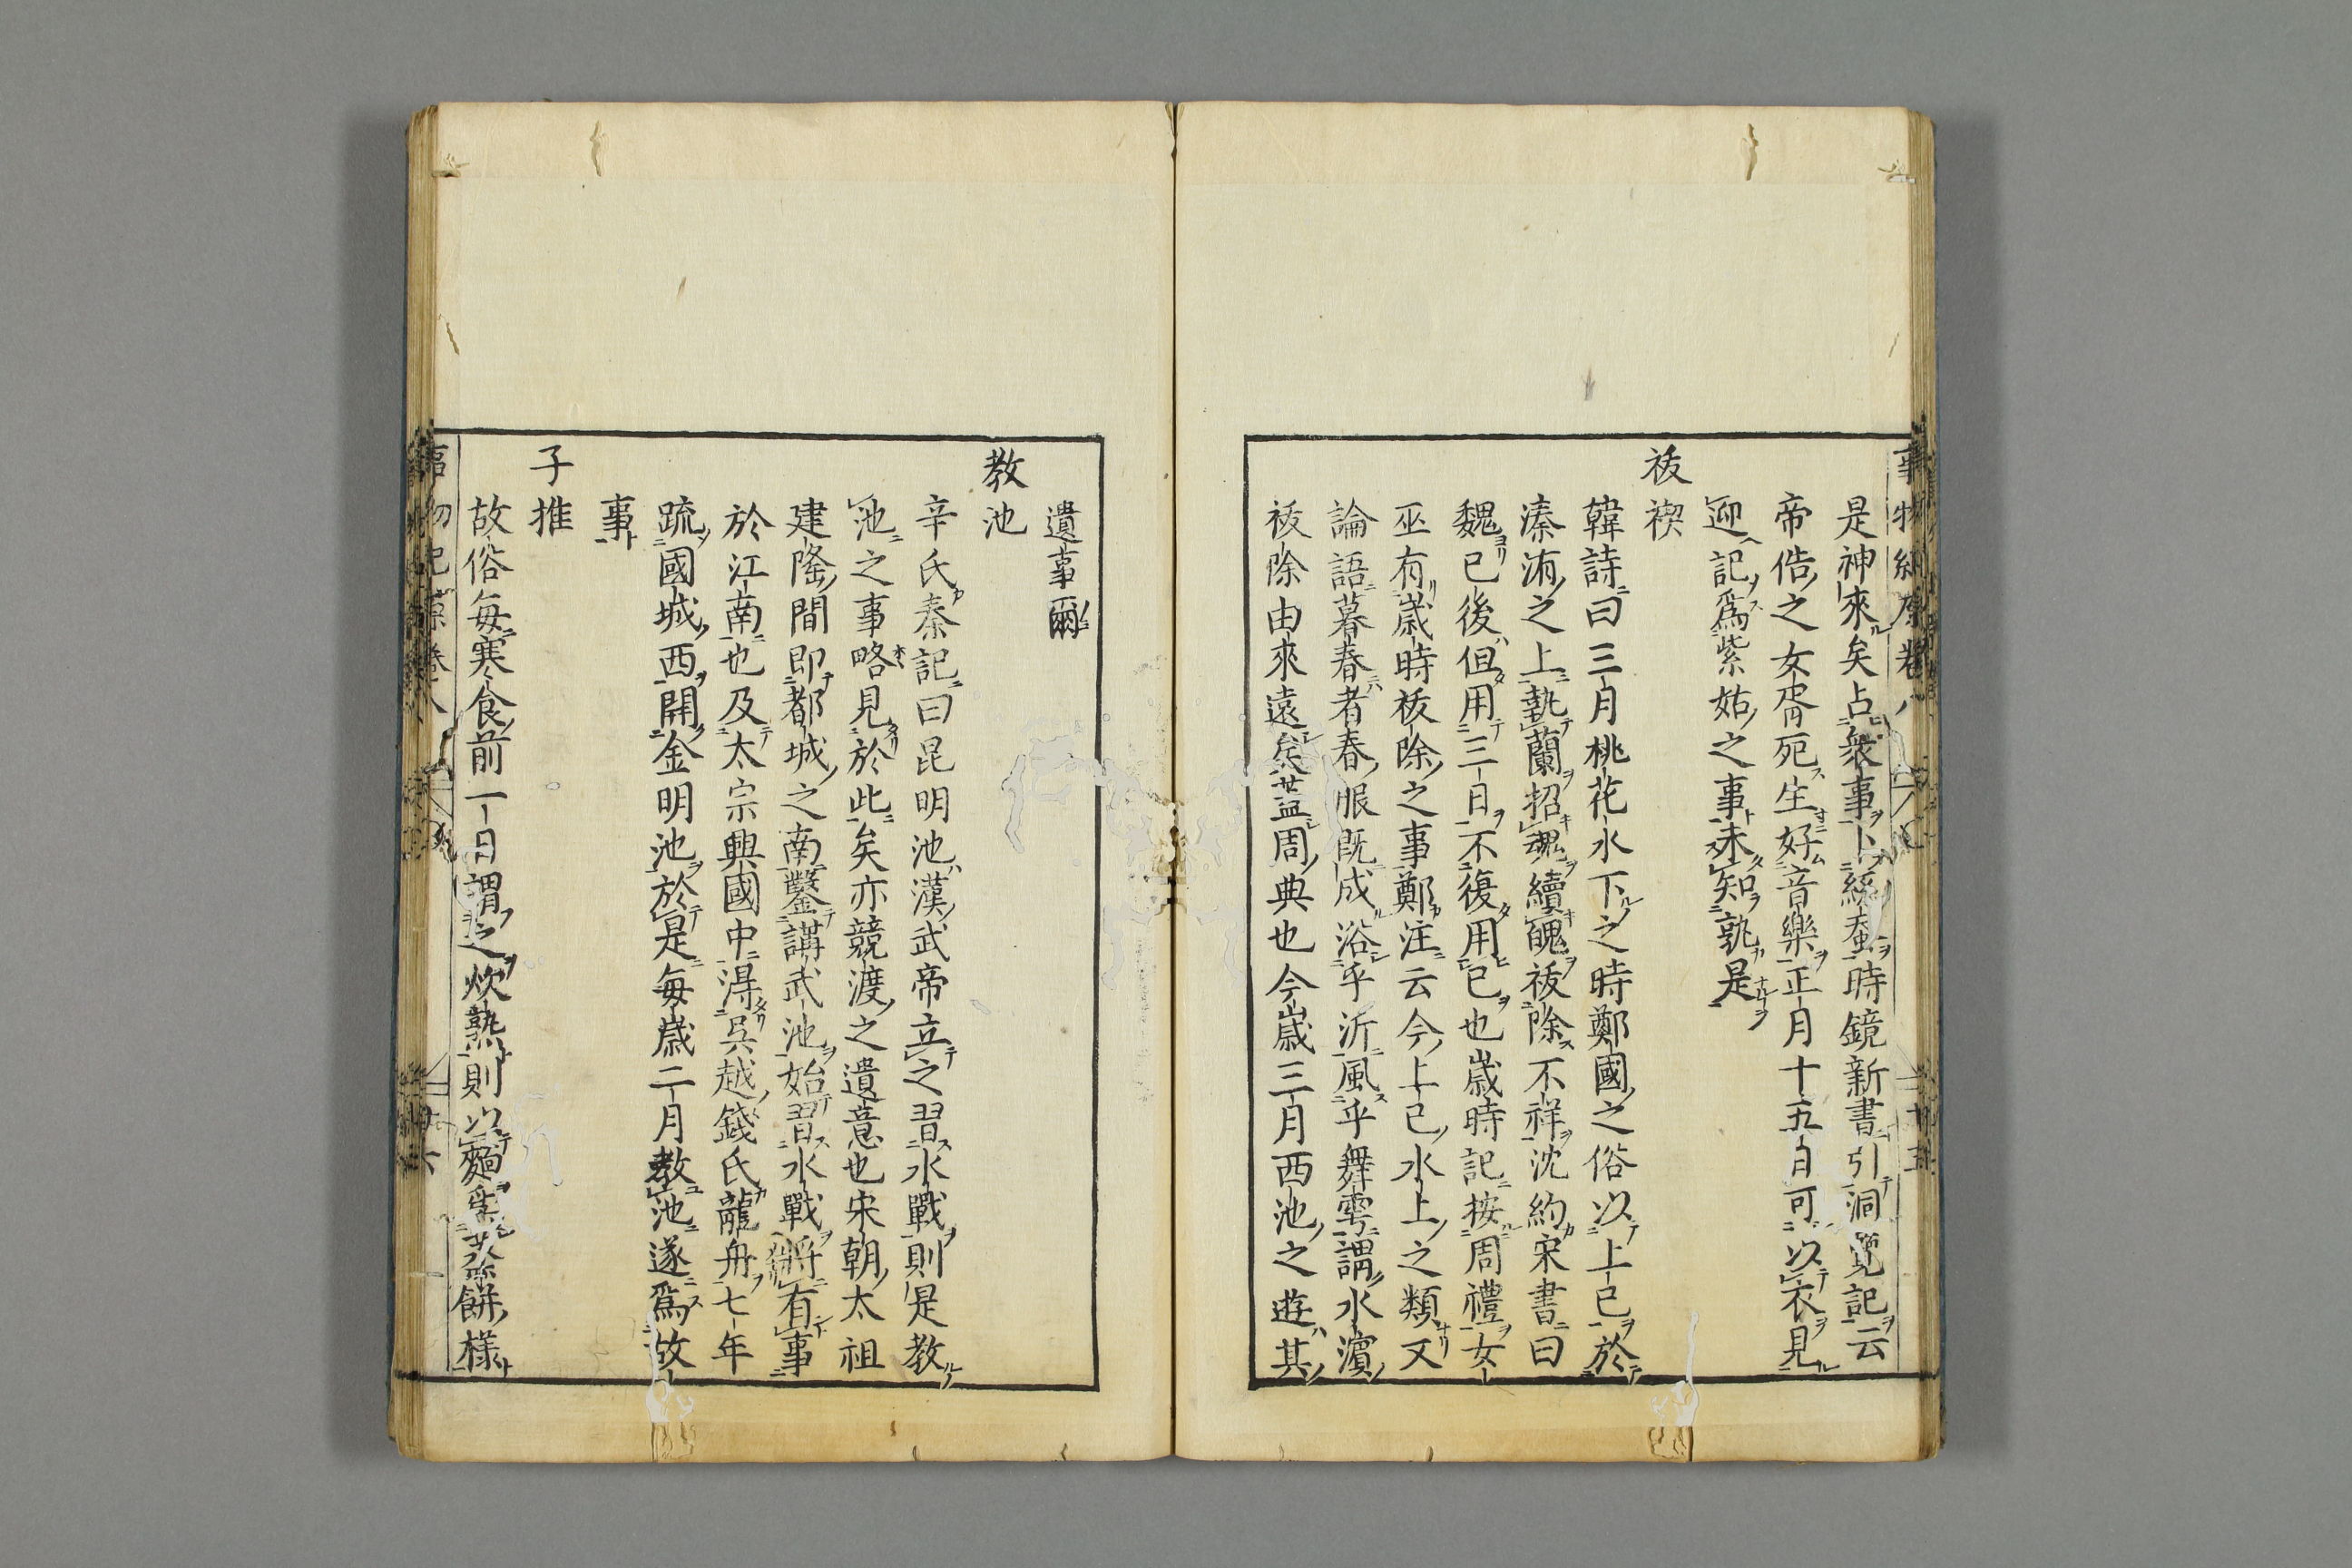 事物紀原卷八
是神來矣占衆事卜絲蚕時鏡新書引洞覽記云
帝俈之女胥死生好音樂正月十五日可以衣見
迎記爲紫姑之事未知孰是
祓禊
韓詩曰三月桃花水下之時鄭國之俗以上巳於
溱洧之上執蘭招魂續魄祓除不祥沈約宋書曰
魏已後但用三日不復用巳也歲時記按周禮女
巫有歲時祓除之事鄭注云今上巳水上之類又
論語暮春者春服既成浴乎沂風乎舞雩謂水濱
祓除由來遠矣葢周典也今歲三月西池之遊其
遺事爾
教池
辛氏秦記曰昆明池漢武帝立之習水戰則是教
池之事略見於此矣亦競渡之遺意也宋朝太祖
建隆間即都城之南鑿講武池始習水戰將有事
於江南也及太宗興國中得吳越錢氏龍舟七年
疏國城西開金明池於是每歲二月教池遂爲故
事
子推
故俗每寒食前一日謂之炊熟則以麵爲蒸餅樣
事物紀原卷八